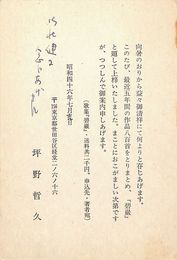 向暑のおりから益々御清祥にて何よりと存じあげます。
このたび、最近五年間の作品八百首をとりまとめ、「碧巌」
と題して上梓いたしました。まことにおこがましい次第です
が、つつしんで御案内申しあげます。
(歌集『碧巌』・送料共二千円、申込先・著者宛)
昭和四十六年七月
東京都世田谷区経堂二ノ六ノ十六
坪野哲久